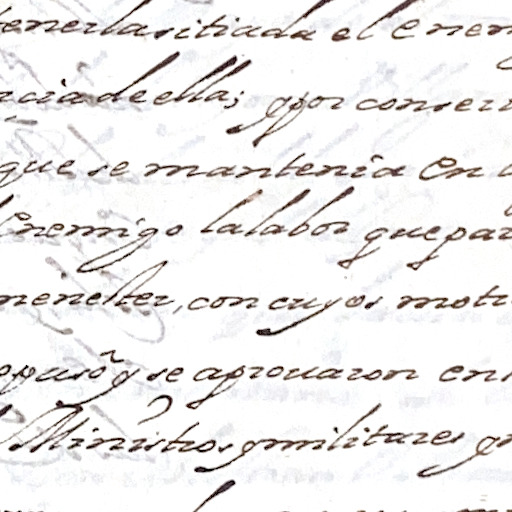 tenerla sitiada el enem
ncia de ella; y por conser
que se mantenia en
Enemigo la labor que par
menester, con cuyos moti
opuso y se aprouaron en
Ministros y militares q